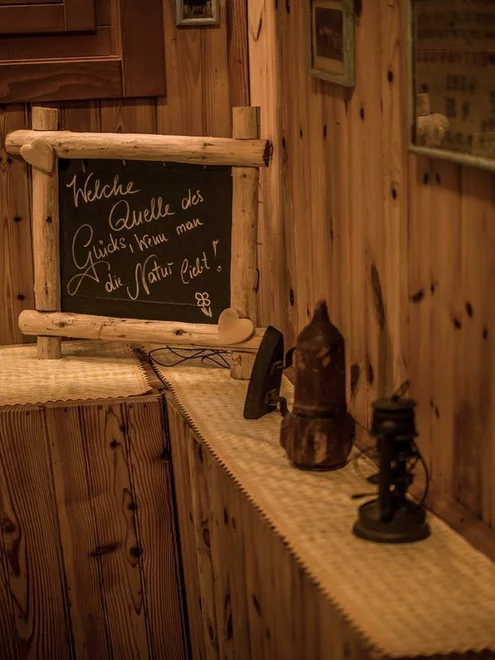 Welche
Quelle des
Glücks, wenn man
die Natur liebt!